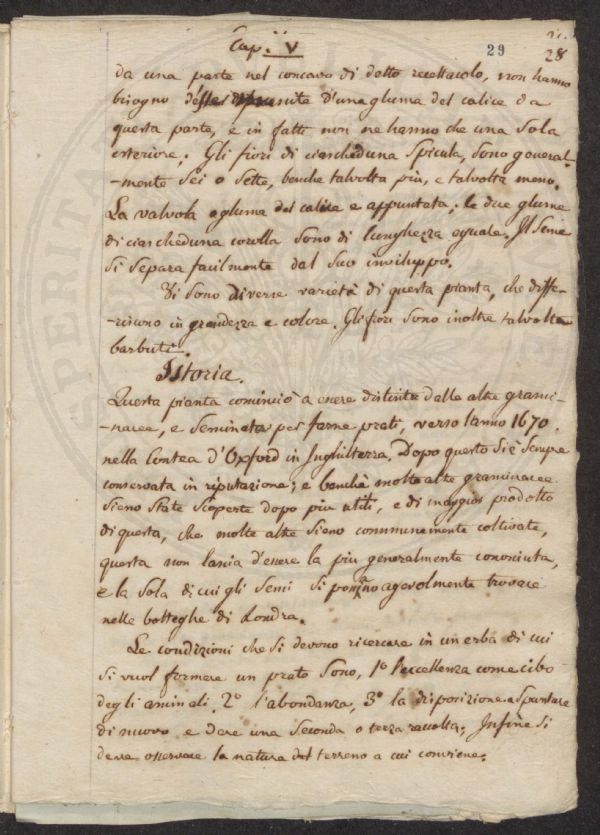 Cap: V
29
28
da una parte nel concavo di detto recettacolo, non hanno
bisogno d'una gluma del calice da
questa parte, e in fatti non ne hanno che una sola
esteriore. Gli fiori di ciascheduna spicula, sono general-
-mente sei o sette, benche talvolta più, e talvolta meno.
La valvola o gluma del calice e appuntata; le due glume
di ciascheduna corolla sono di lunghezza eguale. Il seme
si separa facilmente dal suo inviluppo.
Vi sono diverse varietà di questa pianta, che diffe-
-riscono in grandezza e colore. Gli fiori sono inoltre talvolta
barbuti.
Istoria.
Questa pianta cominciò a essere distinta dalle altre grami-
-nacee, e seminata per farne prati, verso l'anno 1670.
nella Contea d'Oxford in Inghilterra. Dopo questo si è sempre
conservata in riputazione; e benchè molte altre graminacee
sieno state scoperte dopo piu utili, e di maggior prodotto
di questa, che molte altre sieno communemente coltivate,
questa non lascia d'essere la piu generalmente conosciuta,
e la sola di cui gli semi si possino agevolmente trovare
nelle botteghe di Londra.
Le condizioni che si devono ricercare in un erba di cui
si vuol formare un prato sono, 1º l'eccellenza come cibo
degli animali. 2º l'abondanza, 3º la disposizione a spuntare
di nuovo e dare una seconda o terza raccolta. Infine si
deve osservare la natura del terreno a cui conviene.